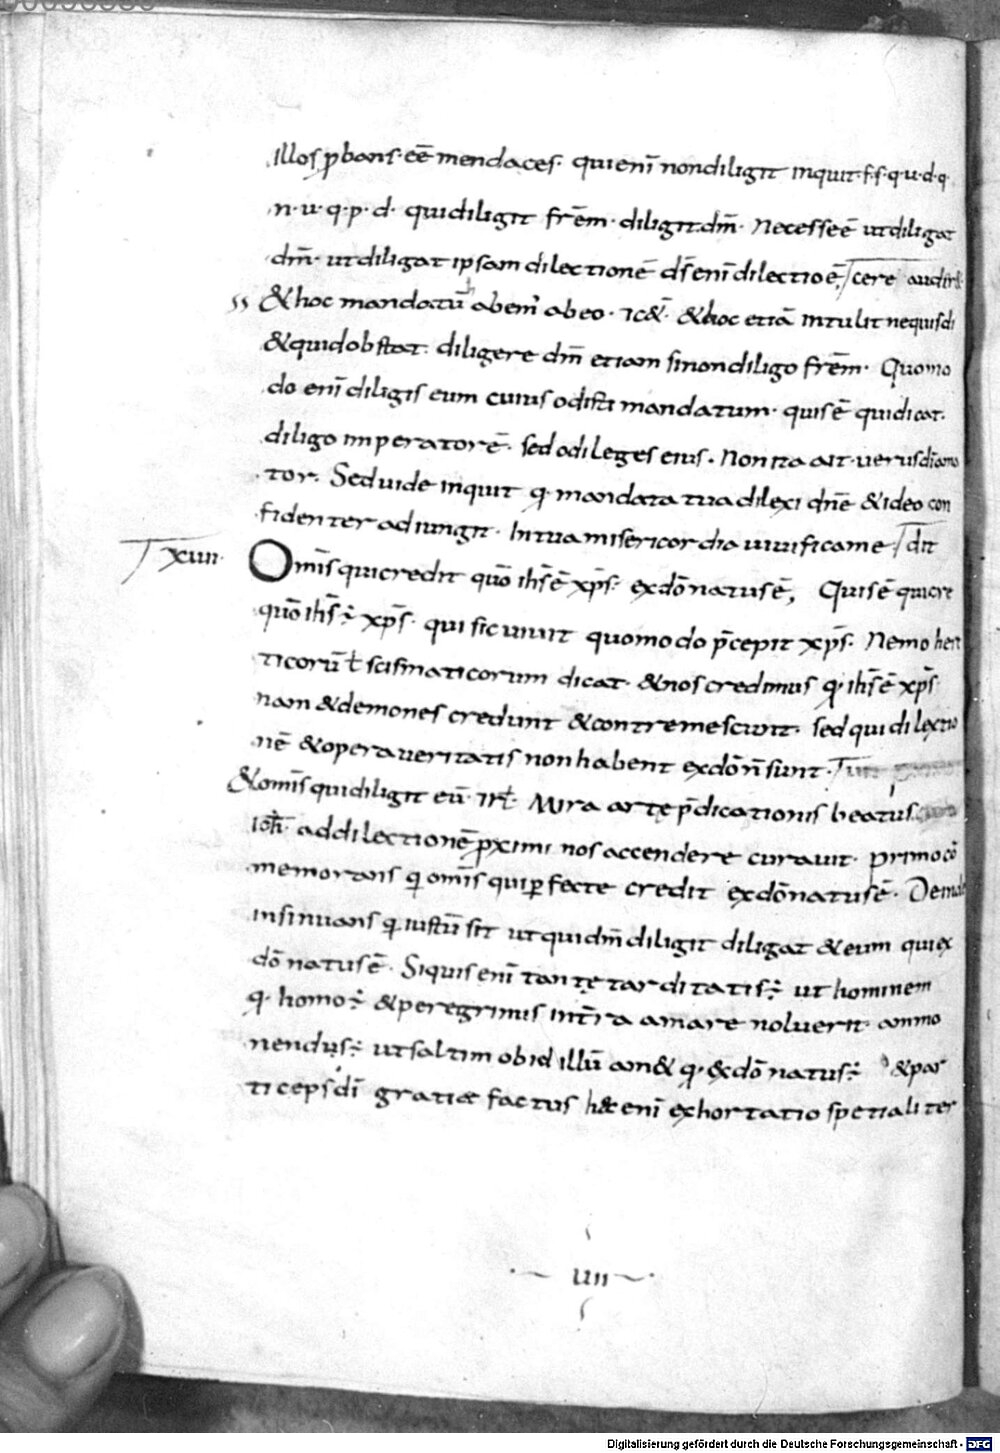 illos ꝓbans· eē mendaces· qui enī non diligit inquit·f·s·q·u·d·q·
n·u·q·p·d· qui diligit fr̄em· diligit dm̄· Necesse ē ut diligat
dm̄· ut diligat ipsam dilectionē ds̄ enī dilectio ē, cere audirẜ
&hoc mandatū habem' abeo· &hoc etiā intulit nequis di
&quid obstat· diligere dm̄ etiam si non diligo fr̄em· Quomo
do enī diligis eum cuius odisti mandatum· quis ē qui dicat·
diligo imperatorē· sed odi leges eius· Non ita ait· uerus dī ama
tor· Sed uide inquit q· mandata tua dilexi dn̄e &ideo con
fidenter adiungit· In tua misericordia uiuifica me dit
xuii· Omīs qui credit quō ih̄s ē xp̄s· ex dō natus ē, Quis ē qui cre
quō ih̄s ÷ xp̄s· qui sic uiuit quomodo p̄cepit xp̄s· Nemo here
ticorū ł scismaticorum dicat· &nos credimus q· ih̄s ē xp̄s
nam &demones credunt &contremescunt· sed qui dilectio
nē &opera ueritatis non habent ex dō n̄ sunt·
&omīs qui diligit eū· Mira arte p̄dicationis beatus
ioh̄· ad dilectionē ꝓximi nos accendere curauit· primo cō
memorans q· omīs qui ꝑfecte credit ex dō natus ē· Deinde
insinuans q· iustū sit ut qui dm̄ diligit diligat &eum qui ex
dō natus ē· Si quis enī tantę tarditatis ÷ ut hominem
q· homo ÷ &peregrinus int̄ ita amare noluerit· ammo
nendus ÷ ut saltim ob id illū am& q· ex dō natus ÷ &par
ticeps dī gratiae factus hęc enī exhortatio spetialiter
uii